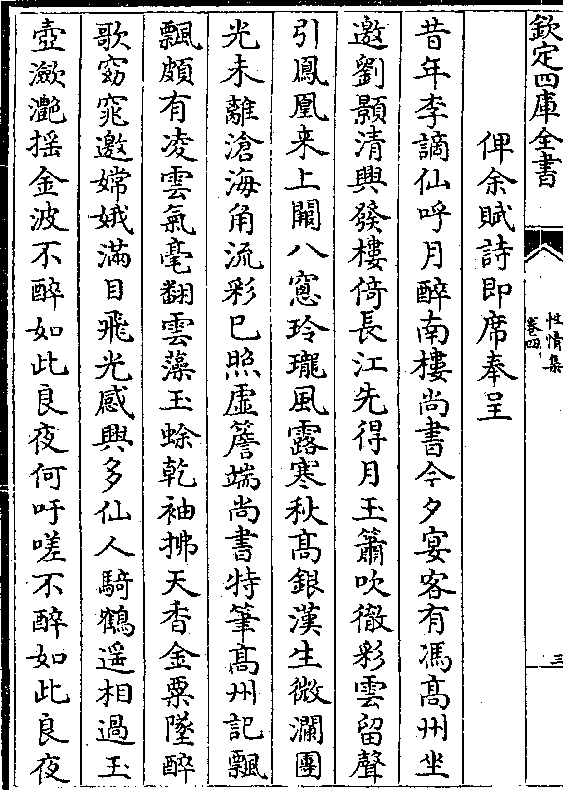 欽定四庫全書
性情集
卷四
三
俾余賦詩即席奉呈
昔年李謫仙呼月醉南樓尚書今夕宴客有馮髙州坐
邀劉顥清興發樓倚長江先得月玉簫吹徹彩雲留聲
引鳳凰来上闕八窻玲瓏風露寒秋髙銀漢生微瀾團
光未離滄海角流彩已照虛簷端尚書特筆髙州記飄
飄頗有凌雲氣毫翻雲藻玉蜍乾袖拂天香金粟墜醉
歌窈窕邀嫦娥滿目飛光感興多仙人騎鶴遥相過玉
壺瀲灔揺金波不醉如此良夜何吁嗟不醉如此良夜